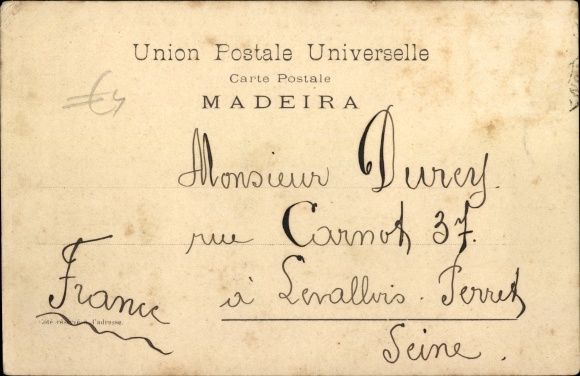 Union Postale Universelle
Carte Postale
MADEIRA
€4
Monsieur Durey.
rue Carnot 37.
à Levallois. Perret
Seine.
France
Côté réservé à l'adresse.